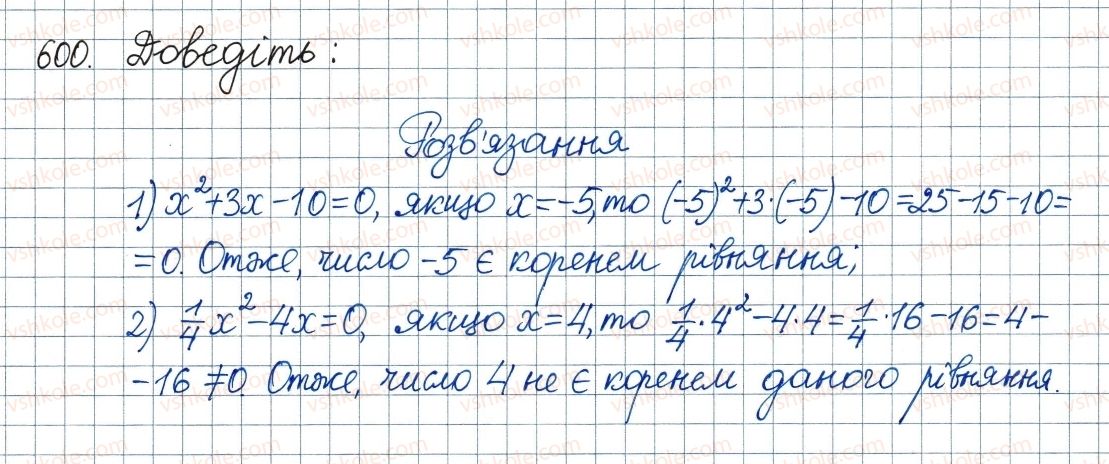 600. Доведіть:
Розв'язання
1) x²+3x-10=0, якщо x=-5, то (-5)²+3·(-5)-10=25-15-10=
=0. Отже, число -5 є коренем рівняння;
2) 1/4 x²-4x=0, якщо x=4, то 1/4·4²-4·4=1/4·16-16=4-
-16≠0. Отже, число 4 не є коренем даного рівняння.